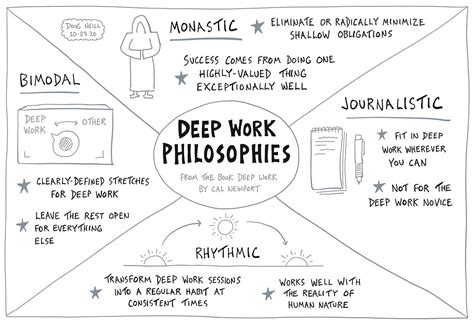 DOUG NEILL
10·29·20
MONASTIC
ELIMINATE OR RADICALLY MINIMIZE
SHALLOW OBLIGATIONS
SUCCESS COMES FROM DOING ONE
HIGHLY-VALUED THING
EXCEPTIONALLY WELL
BIMODAL
DEEP
WORK
OTHER
CLEARLY-DEFINED STRETCHES
FOR DEEP WORK
LEAVE THE REST OPEN
FOR EVERYTHING
ELSE
DEEP WORK
PHILOSOPHIES
FROM THE BOOK DEEP WORK
BY CAL NEWPORT
JOURNALISTIC
FIT IN DEEP
WORK WHEREVER
YOU CAN
NOT FOR THE
DEEP WORK NOVICE
RHYTHMIC
TRANSFORM DEEP WORK SESSIONS
INTO A REGULAR HABIT AT
CONSISTENT TIMES
WORKS WELL WITH
THE REALITY OF
HUMAN NATURE